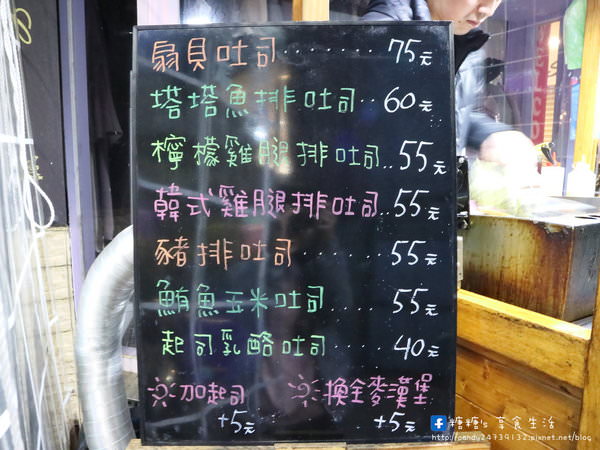 扇貝吐司.......75元
塔塔魚排吐司..60元
檸檬雞腿排吐司..55元
韓式雞腿排吐司..55元
豬排吐司.....55元
鮪魚玉米吐司...55元
起司乳酪吐司...40元
加起司 換全麥漢堡
+5元 +5元
糖糖's 享食生活
http://candy24739132.pixnet.net/blog